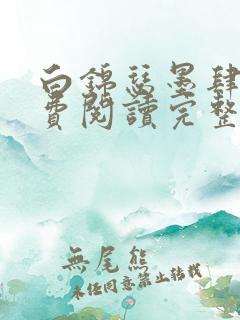 白錦瑟墨肆
費閱讀完整
無尾熊
未經同意禁止转载